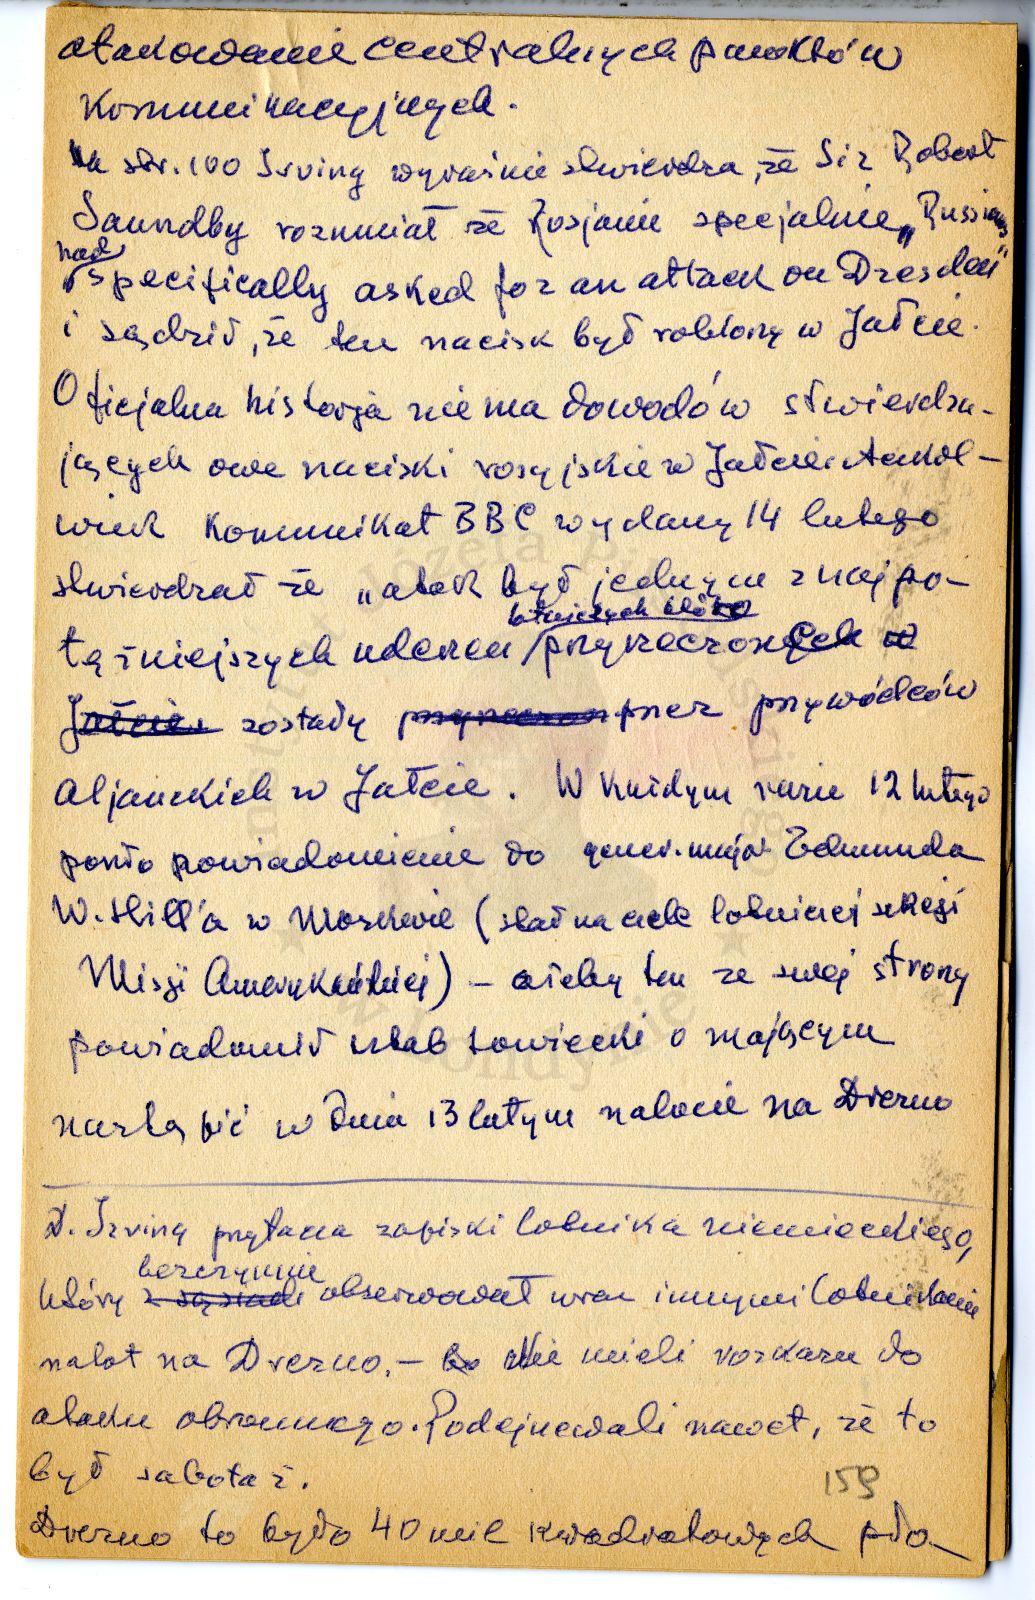 atakowanie centralnych punktów
Komunikacyjnych.
Na str. 100 Irving wyraźnie stwierdza, że Sir Robert
Saundby rozumiał że Rosjanie specjalnie „Russians
had
specifically asked for an attack on Dresden"
i sądził, że ten nacisk był robiony w Jałcie.
Oficjalna historja nie ma dowodów stwierdza-
jących owe naciski rosyjskie w Jałcie. Aczkol-
wiek Komunikat BBC wydany 14 lutego
stwierdzał że „atak był jednym z najpo-
lotniczych które
tężniejszych uderzeń przyrzeczonych w
Jałcie zostały przyrzeczon przez przywódców
Aljanckich w Jałcie. W każdym razie 12 lutego
poszło powiadomienie do gener. major Edmunda
W. Hill'a w Moskwie (stał na czele lotniczej sekcji
Misji Amerykańskiej) – ażeby ten ze swej strony
powiadomił sztab sowiecki o mającym
nastąpić w dniu 13 lutym nalocie na Drezno
D. Irving przytacza zapiski lotnika niemieckiego,
bezczynnie
który obserwował wraz innymi lotnikami
nalot na Drezno. – Nie mieli rozkazu do
ataku obronnego. Podejrzewali nawet, że to
był sabotaż.
159
Drezno to było 40 mil kwadratowych pło